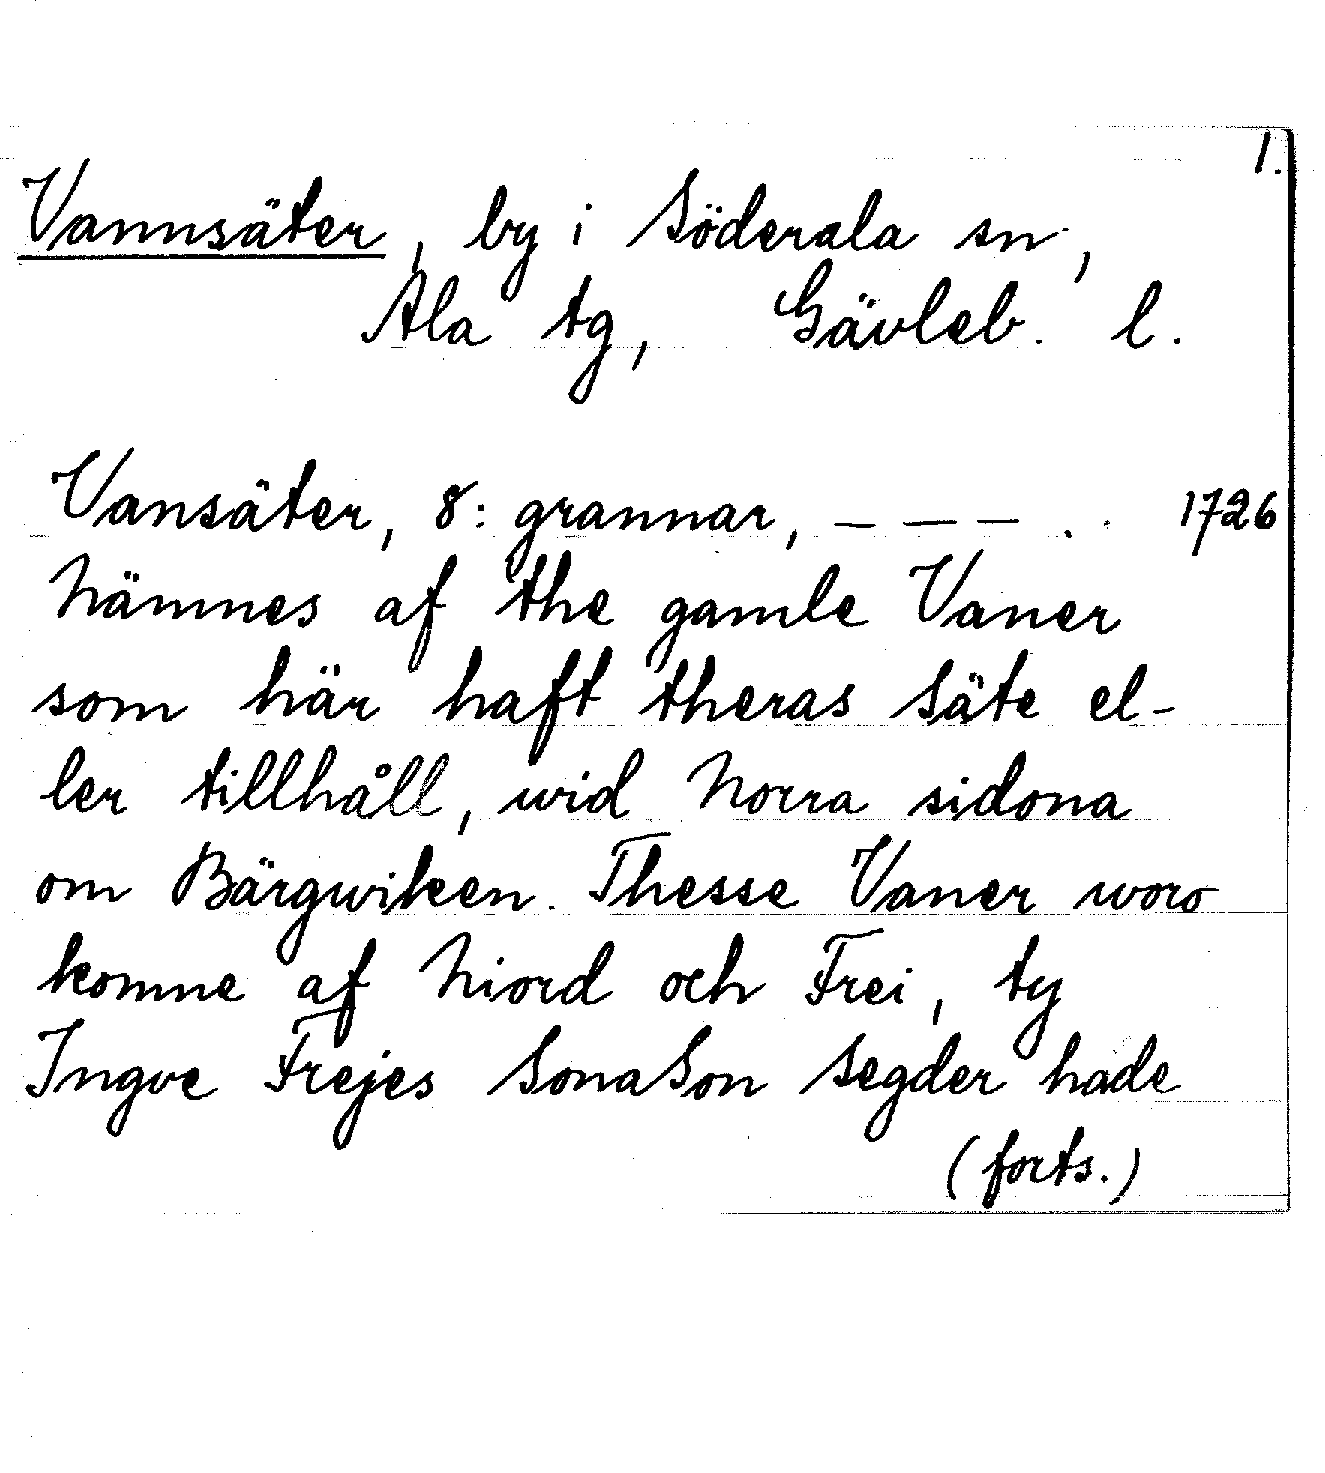 1.
Vannsäter, by i Söderala sn,
Ala tg, Gävleb. l.
Vansäter, 8: grannar, – – – . . 1726
Nämnes af the gamle Vaner
som här haft theras Säte el-
ler tillhåll, wid Norra sidona
om Bärgwiken. Thesse Vaner woro
komne af Niord och Frei, ty
Ingve Frejes SonaSon Segder hade
(forts.)